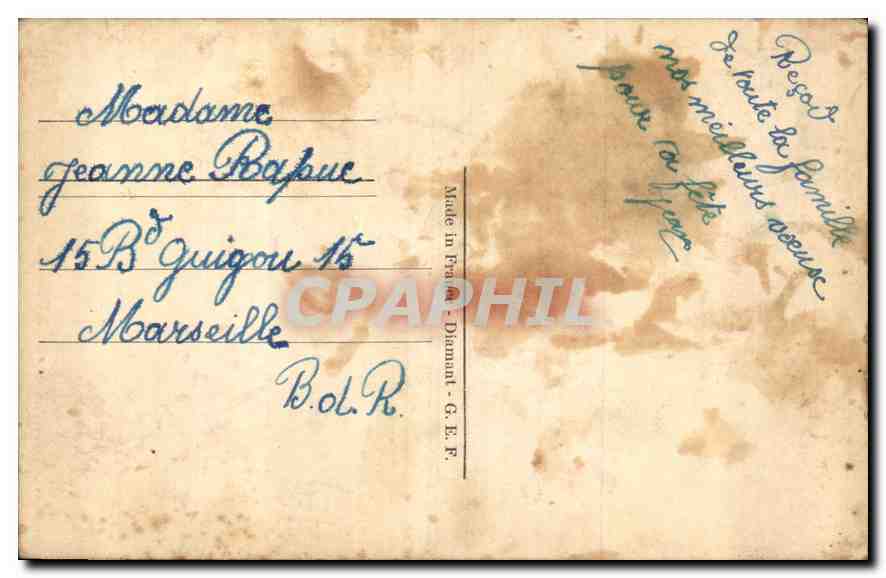 Madame
Jeanne Rapuc
15 Bd Guigou 15
Marseille
B.d.R.
Made in France - Diamant - G. E. F.
Reçoit
de toute la famille
nos meilleurs voeux
pour ta fête
Jean
CPAPHIL